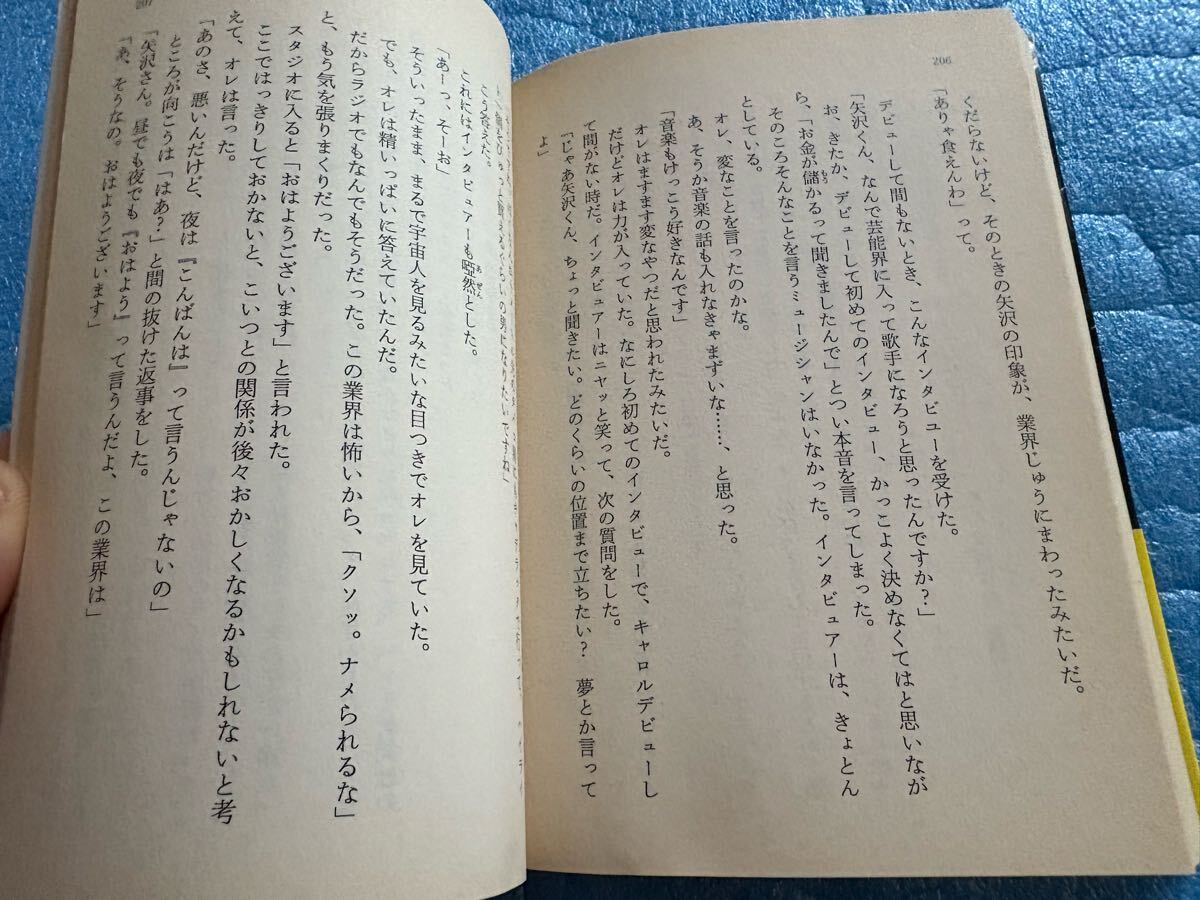 206
くだらないけど、そのときの矢沢の印象が、業界じゅうにまわったみたいだ。
「ありゃ食えんわ」って。
デビューして間もないとき、こんなインタビューを受けた。
「矢沢くん、なんで芸能界に入って歌手になろうと思ったんですか?」
お、きたか、デビューして初めてのインタビュー、かっこよく決めなくてはと思いなが
ら、「お金が儲かるって聞きましたんで」とつい本音を言ってしまった。
そのころそんなことを言うミュージシャンはいなかった。インタビュアーは、きょとん
としている。
オレ、変なことを言ったのかな。
あ、そうか音楽の話も入れなきゃまずいな……、と思った。
「音楽もけっこう好きなんです」
オレはますます変なやつだと思われたみたいだ。
だけどオレは力が入っていた。なにしろ初めてのインタビューで、キャロルデビューし
て間がない時だ。インタビュアーはニヤッと笑って、次の質問をした。
「じゃあ矢沢くん、ちょっと聞きたい。どのくらいの位置まで立ちたい? 夢とか言って
よ」
207
こう答えた。
これにはインタビュアーも啞然とした。
「あーっ、そーお」
そういったまま、まるで宇宙人を見るみたいな目つきでオレを見ていた。
でも、オレは精いっぱいに答えていたんだ。
だからラジオでもなんでもそうだった。この業界は怖いから、「クソッ。ナメられるな」
と、もう気を張りまくりだった。
スタジオに入ると「おはようございます」と言われた。
ここではっきりしておかないと、こいつとの関係が後々おかしくなるかもしれないと考
えて、オレは言った。
「あのさ、悪いんだけど、夜は『こんばんは』って言うんじゃないの」
ところが向こうは「はあ?」と間の抜けた返事をした。
「矢沢さん。昼でも夜でも『おはよう』って言うんだよ、この業界は」
「あ、そうなの。おはようございます」